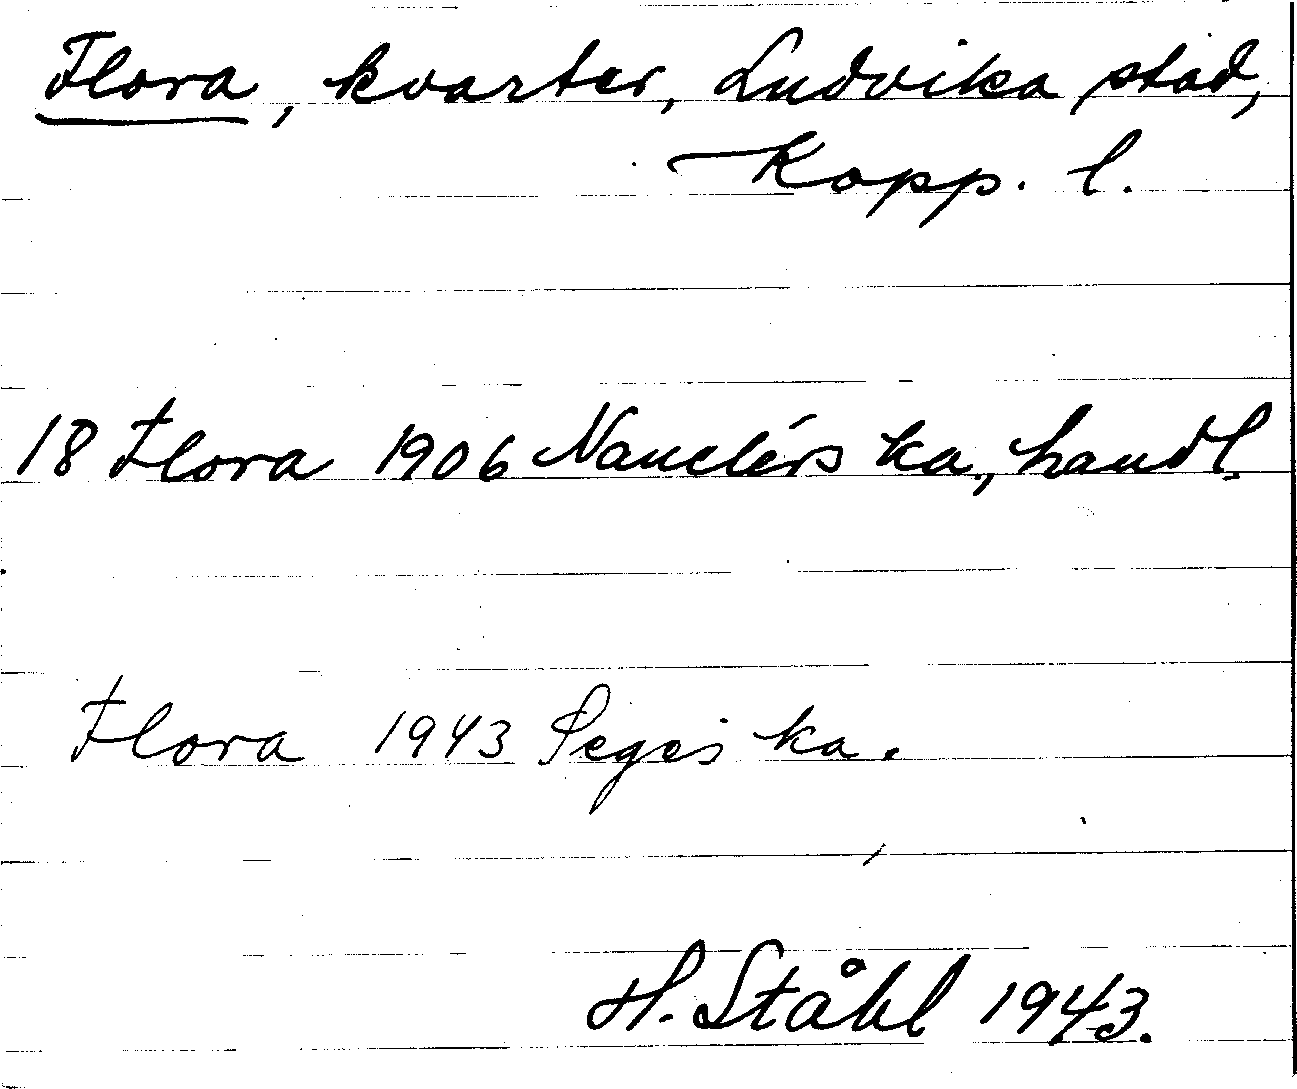 Flora, kvarter, Ludvika stad,
Kopp. l.
18 Flora 1906 Nauclérs ka., handl.
Flora 1943 Peges ka.
H. Ståhl 1943.